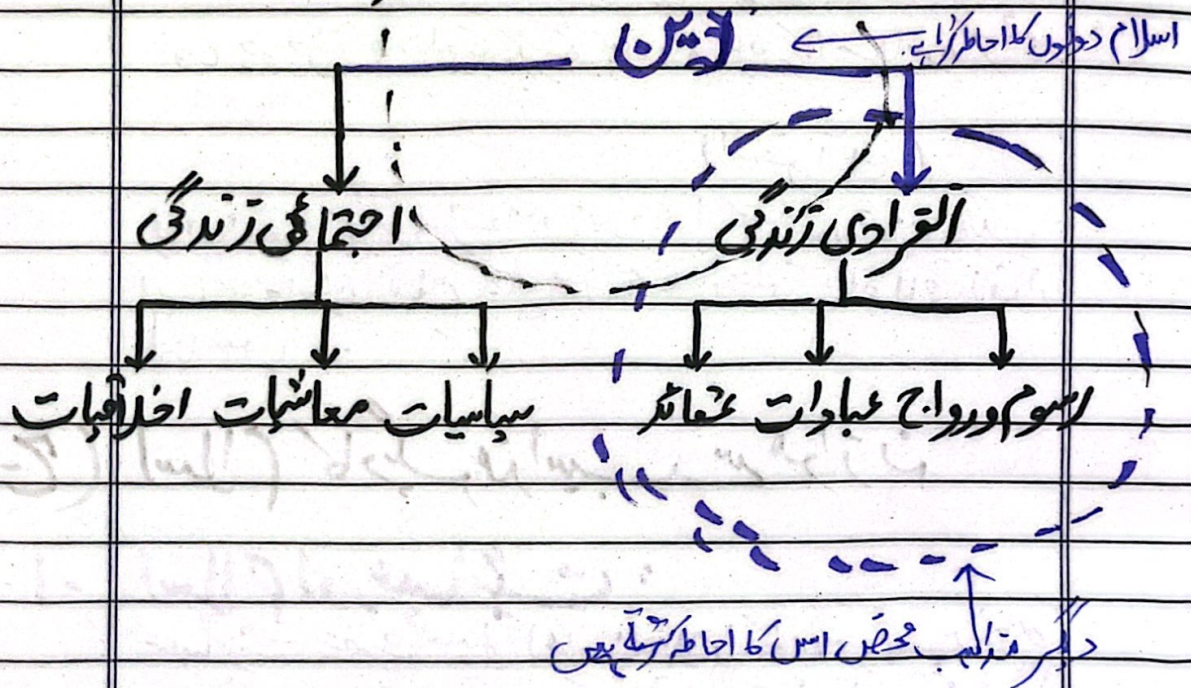 دین
اسلام دونوں کا احاطہ کرتا ہے۔
انفرادی زندگی
اجتماعی زندگی
رسوم و رواج عبادات عقائد
سیاسیات معاشیات اخلاقیات
دیگر مذاہب محض اس کا احاطہ کرتے ہیں